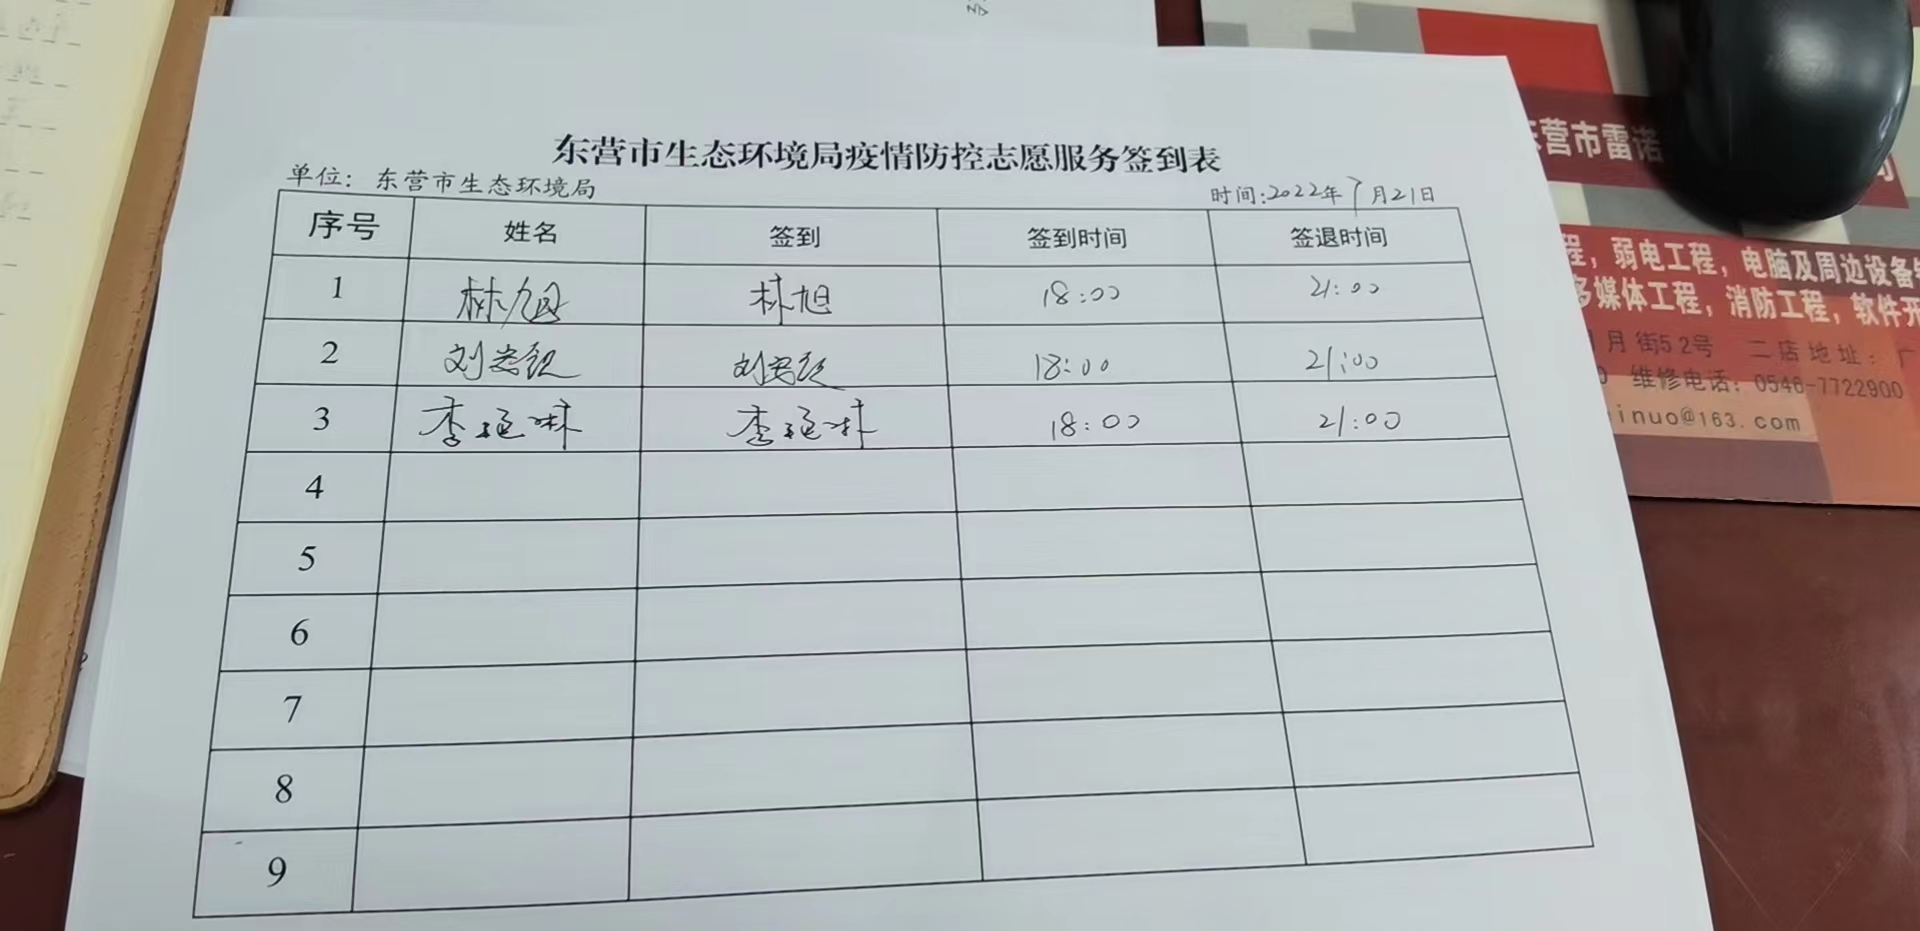 东营市生态环境局疫情防控志愿服务签到表
单位：东营市生态环境局 时间:2022年7月21日
序号 姓名 签到 签到时间 签退时间
1 林旭 林旭 18:00 21:00
2 刘 刘 18:00 21:00
3 李 李 18:00 21:00
4
5
6
7
8
9
营市雷诺
程，弱电工程，电脑及周边设备
多媒体工程，消防工程，软件开
月街52号 二店地址：广
维修电话：0546-7722900
inuo@163.com